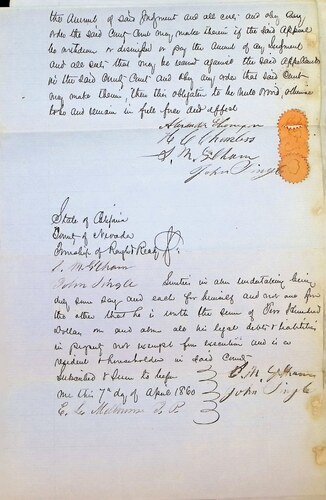 the Amount of said Judgment and all costs and obey any
order the said Court may make therein if the said Appeal
be withdrawn or dismissed or pay the Amount of any Judgment
and all costs that may be recovered against the said Appellants
in the said County Court and obey any order that said Court
may make therein, then this obligation to be Null & Void, otherwise
to be and remain in full force and effect
Alexander Thompson
S. M. Gilham
John Single
State of California
County of Nevada
Township of Rough & Ready
S. M. Gilham
John Single
Sureties in above undertaking being
duly sworn say and each for himself and not one for
the other that he is worth the sum of Two Hundred
Dollars over and above all his legal debts & liabilities
in property not exempt from execution and is a
resident & householder in said County
Subscribed & Sworn to before
me this 7th day of April 1860
S. M. Gilham
John Single
J. P.